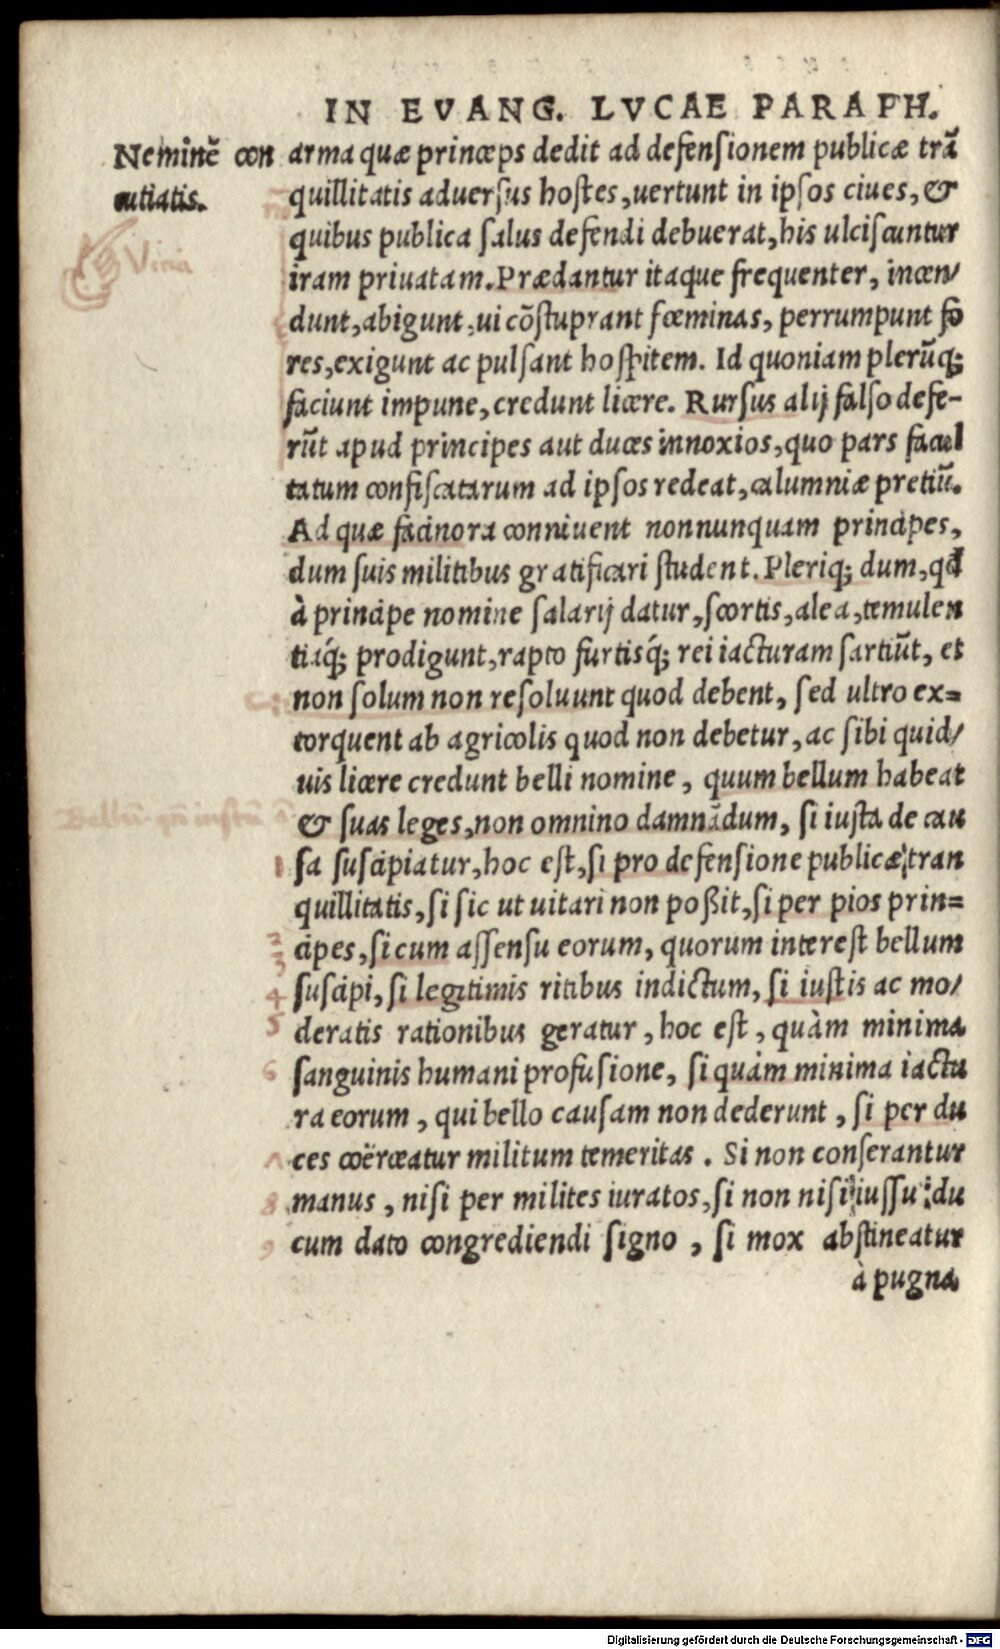 IN EVANG. LVCAE PARAPH.
Neminē con
cutiatis.
Viria
arma quæ princeps dedit ad defensionem publicæ trā
quillitatis aduersus hostes, uertunt in ipsos ciues, &
quibus publica salus defendi debuerat, his ulciscuntur
iram priuatam. Prædantur itaque frequenter, incen/
dunt, abigunt, ui cōstuprant fœminas, perrumpunt fo
res, exigunt ac pulsant hospitem. Id quoniam plerūq;
faciunt impune, credunt licere. Rursus alij falso defe-
rūt apud principes aut duces innoxios, quo pars facul
tatum confiscatarum ad ipsos redeat, calumniæ pretiū.
Ad quæ facinora conniuent nonnunquam principes,
dum suis militibus gratificari student. Pleriq; dum, qd
à principe nomine salarij datur, scortis, alea, temulen
tiaq́; prodigunt, rapto furtisq́; rei iacturam sartiūt, et
non solum non resoluunt quod debent, sed ultro ex=
torquent ab agricolis quod non debetur, ac sibi quid/
uis licere credunt belli nomine, quum bellum habeat
& suas leges, non omnino damnādum, si iusta de cau
sa suscipiatur, hoc est, si pro defensione publicæ tran
quillitatis, si sic ut uitari non poßit, si per pios prin=
cipes, si cum assensu eorum, quorum interest bellum
suscipi, si legitimis ritibus indictum, si iustis ac mo/
deratis rationibus geratur, hoc est, quàm minima
sanguinis humani profusione, si quàm minima iactu
ra eorum, qui bello causam non dederunt, si per du
ces coërceatur militum temeritas. Si non conserantur
manus, nisi per milites iuratos, si non nisi iussu du
cum dato congrediendi signo, si mox abstineatur
à pugna
1
2
3
4
5
6
7
8
9
Digitalisierung gefördert durch die Deutsche Forschungsgemeinschaft - DFG